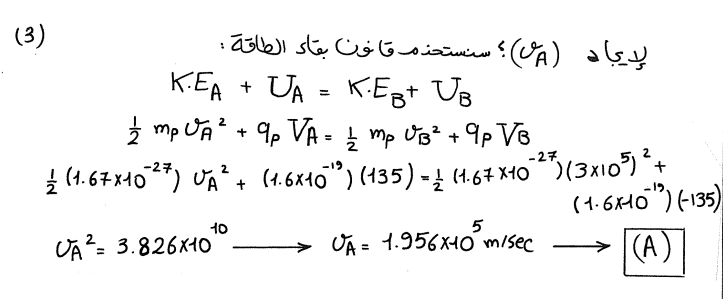 (3)
لإيجاد (υA)؟ سنستخدم قانون بقاء الطاقة:
K.E_A + U_A = K.E_B + U_B
½ m_p υ_A² + q_p V_A = ½ m_p υ_B² + q_p V_B
½ (1.67×10⁻²⁷) υ_A² + (1.6×10⁻¹⁹)(135) = ½ (1.67×10⁻²⁷)(3×10⁵)² +
(1.6×10⁻¹⁹)(-135)
υ_A² = 3.826×10¹⁰ ⟶ υ_A = 1.956×10⁵ m/sec ⟶ (A)